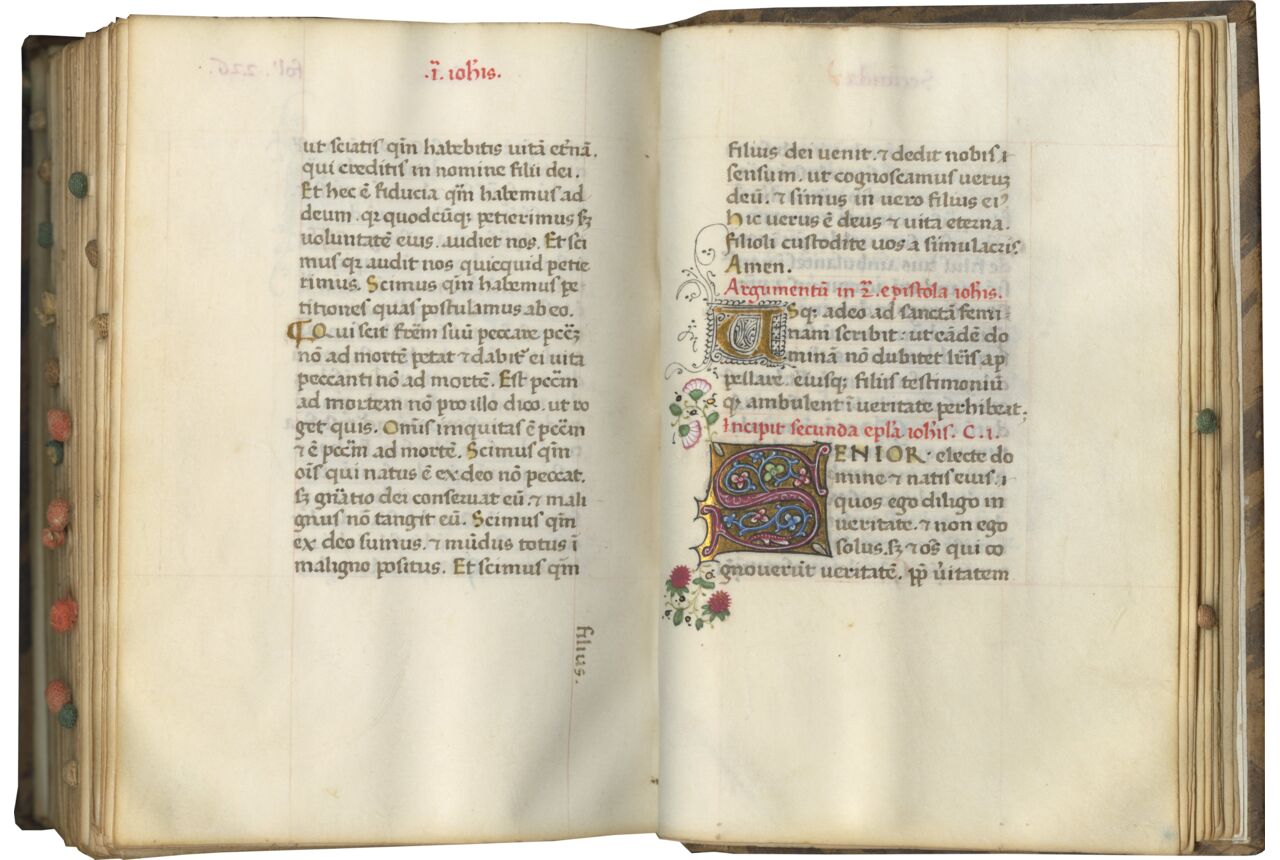 .ī. ioh̄is.
ut sciatis qm̄ habebitis uitā et̄nā.
qui creditis in nomine filii dei.
Et hec ē fiducia qm̄ habemus ad
deum. qꝛ quodcūqꝫ petierimus sꝫ
uoluntatē eius. audiet nos. Et sci
mus qꝛ audit nos quicquid petie
rimus. Scimus qm̄ habemus pe
titiones quas postulamus ab eo.
Qui scit fr̄em suū peccare pecc̄ꝫ
nō ad mortē petat ⁊ dabit᷑ ei uita
peccanti nō ad mortē. Est pecc̄m
ad mortem nō pro illo dico. ut ro
get quis. Om̄is iniquitas ē pecc̄m
⁊ ē pecc̄m ad mortē. Scimus qm̄
oīs qui natus ē ex deo nō peccat.
sꝫ gn̄atio dei conseruat eū. ⁊ mali
gnus nō tangit eū. Scimus qm̄
ex deo sumus. ⁊ mūdus totus ī
maligno positus. Et scimus qm̄
filius.
filius dei uenit. ⁊ dedit nobis
sensum. ut cognoscamus ueruꝫ
deū. ⁊ simus in uero filius ei⁹
hic uerus ē deus ⁊ uita eterna.
Filioli custodite uos a simulacris.
Amen.
Argumentū in .2̄. epistola iohis.
Usqꝫ adeo ad sanctā femi
nam scribit: ut eādē do
minā nō dubitet lr̄is ap
pellare. eiusqꝫ filiis testimoniū
ꝙ ambulent ī ueritate perhibeat;
Incipit secunda epl̄a ioh̄is. C. i.
SENIOR electe do
mine ⁊ natis eius.
quos ego diligo in
ueritate. ⁊ non ego
solus. sꝫ ⁊ oēs qui co
gnouerūt ueritatē. pp̄ ūitatem